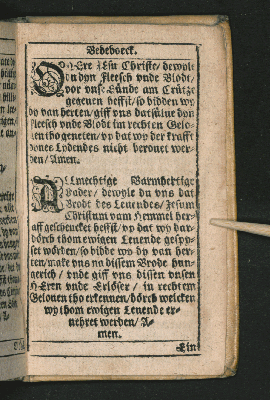 Bedeboeck.
O HEre JEsu Christe/ dewyle
du dyn Fleesch vnde Blodt/
vor vnse Sünde am Crütze
gegeuen heffst/ so bidden wy
dy van herten/ giff vns dat sülue dyn
Fleesch vnde Blodt im rechten Gelo-
uen tho geneten/ vp dat wy der krafft
dynes Lydendes nicht berouet wer-
den/ Amen.
ALmechtige Barmhertige
Vader/ dewyle du vns dat
Brodt des Leuendes/ Jesum
Christum vam Hemmel her-
aff geschencket heffst/ vp dat wy dar-
dörch thom ewigen Leuende gespy-
set wörden/ so bidde wy dy van her-
ten/ make vns na dissem Brode hun-
gerich/ vnde giff vns dissen vnsen
HEren vnde Erlöser/ in rechtem
Gelouen tho erkennen/ dörch welcken
wy thom ewigen Leuende er-
nehret werden/ A-
men.
Ein